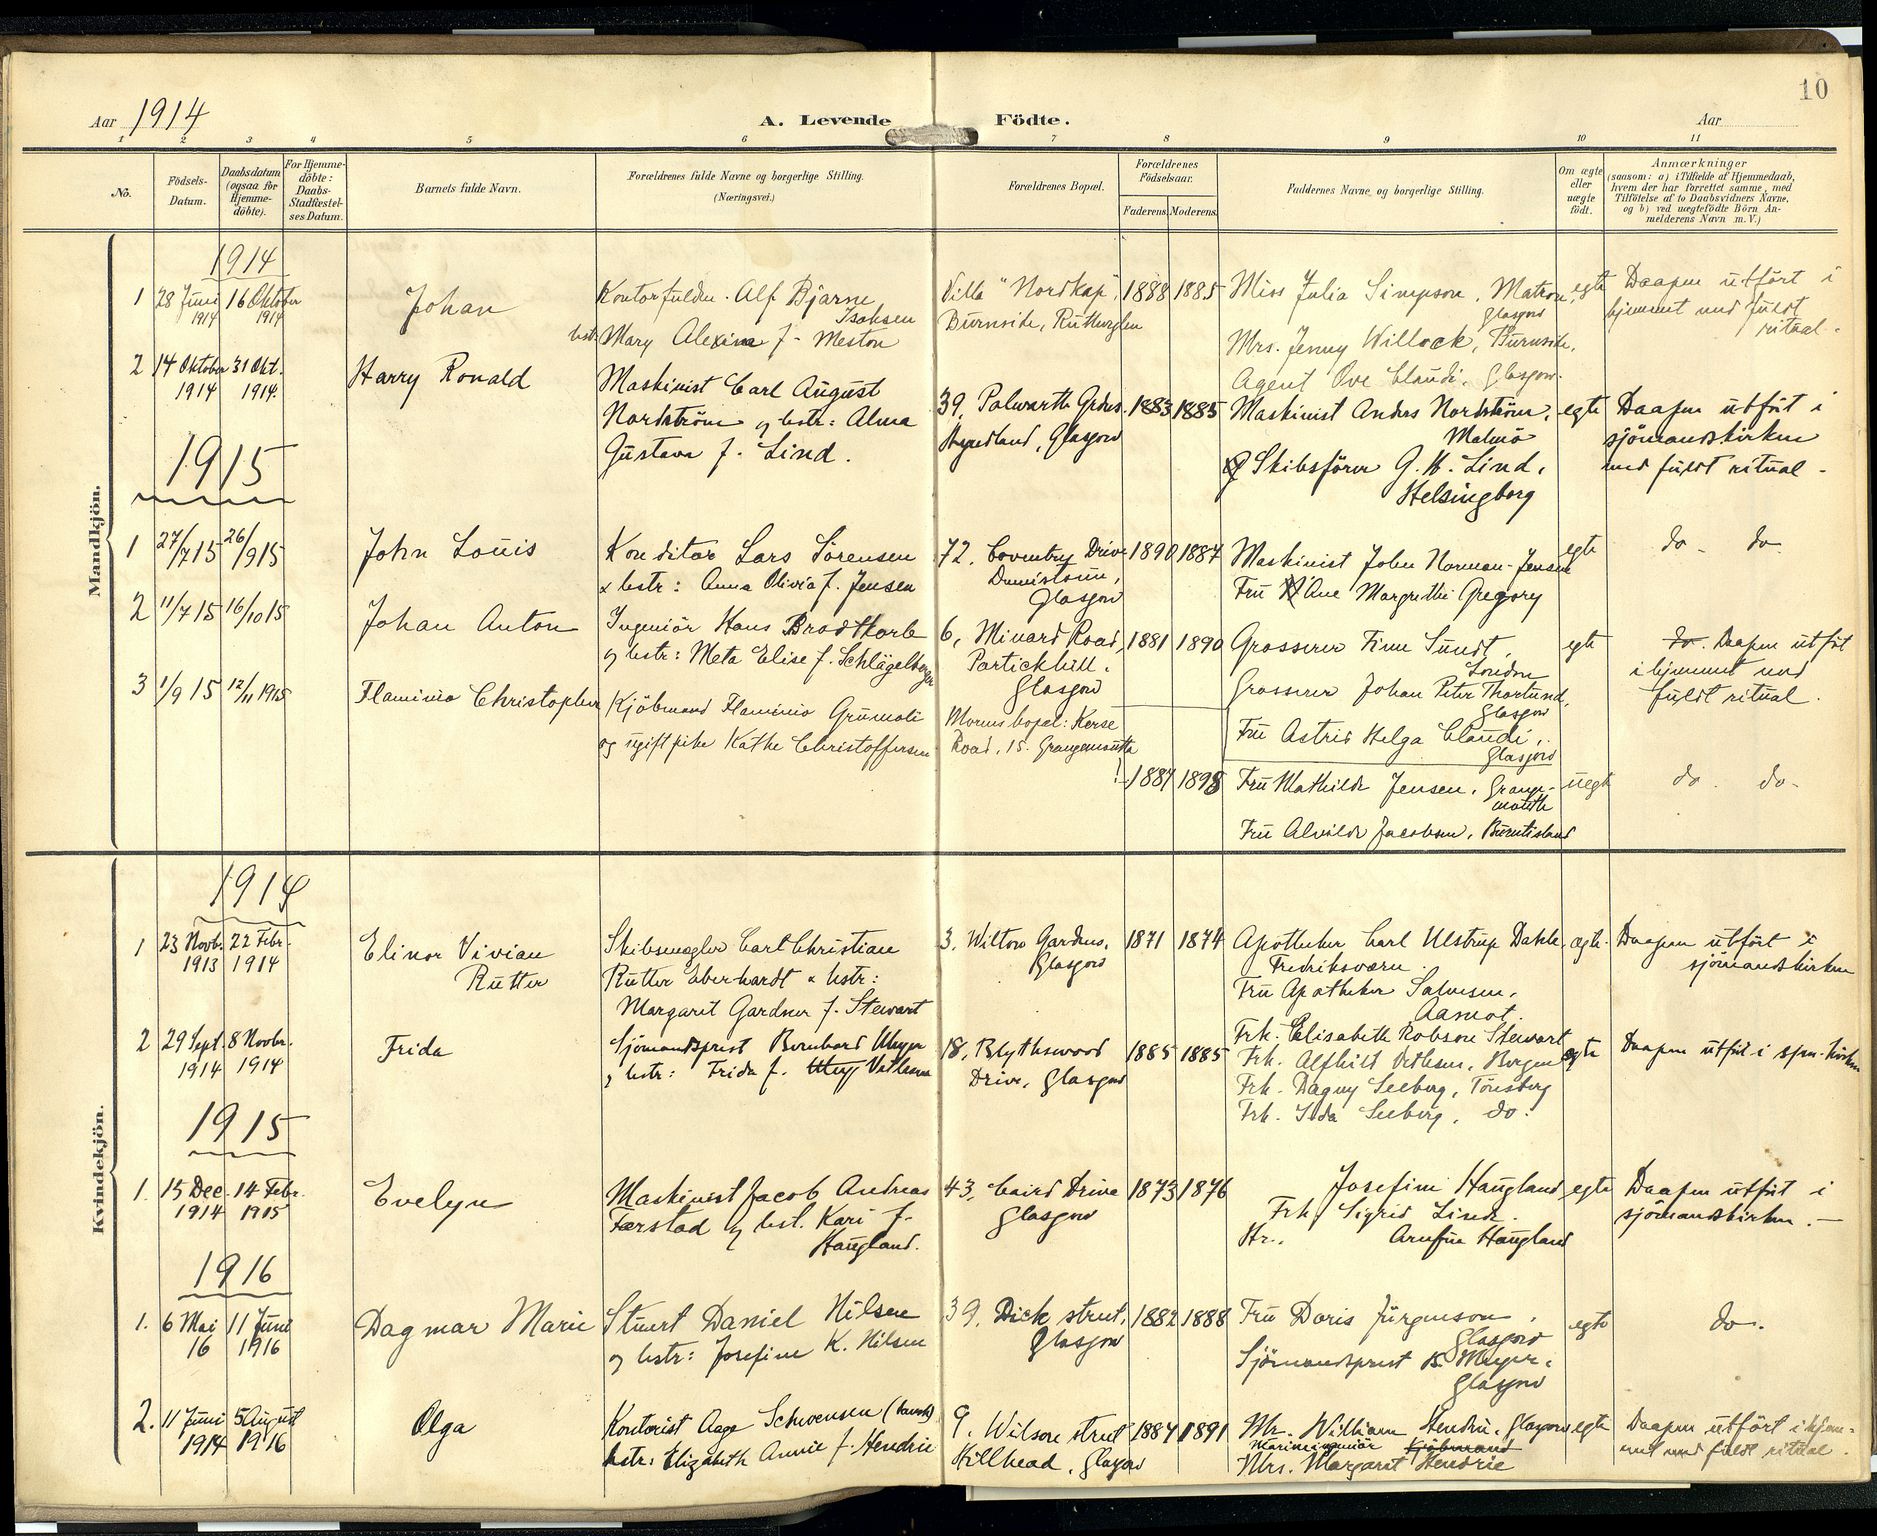 10
Aar 1914
A. Levende Födte.
Aar
1 2 3 4 5 6 7 8 9 10 11
No.
Födsels-Datum.
Daabsdatum (ogsaa for Hjemme-döbte).
For Hjemme-döbte: Daabs-Stadfæstel-ses Datum.
Barnets fulde Navn.
Forældrenes fulde Navne og borgerlige Stilling.
(Næringsvei.)
Forældrenes Bopæl.
Forældrenes Födselsaar.
Faderens. Moderens.
Faddernes Navne og borgerlige Stilling.
Om ægte eller uægte födt.
Anmærkninger
(saasom: a) i Tilfælde af Hjemmedaab,
hvem der har forrettet samme, med
Tilföielse af to Daabsvidners Navne,
og b) ved uægtefödte Börn An-
melderens Navn m. V.)
Mandkjön.
1914
1 28 Juni 1914 16 Oktober 1914
Johan
Kontorfuldm. Alf Bjarne
Isaksen
hstr: Mary Alexina f. Meston
Villa "Nordkap",
Burnside, Rutherglen
1888 1885
Miss Julia Simpson, Matron,
Glasgow
Mrs. Jenny Willock, Burnside.
Agent Ove Claudi, Glasgow.
egte
Daapen utfört i
hjemmet med fuldt
ritual.
2 14 Oktober 1914 31 Okt. 1914.
Harry Ronald
Maskinist Carl August
Nordström og hstr: Alma
Gustava f. Lind.
39, Polwarth Grdns.
Hyndland, Glasgow
1883 1885
Maskinist Anders Nordström,
Malmö
Skibsförer G. H. Lind,
Helsingborg
egte
Daapen utfört i
sjömandskirken
med fuldt ritual -
1915
1 27/7 15 26/9 15
John Louis
Konditor Lars Sörensen
& hstr: Anna Olivia f. Jensen
72. Coventry Drive
Dennistoun,
Glasgow
1890 1887
Maskinist John Norman-Jensen
Fru Ane Margrethe Gregory
egte
do - do
2 11/7 15 16/10 15
Johan Anton
Ingeniör Hans Brodtkorb
og hstr: Meta Elise f. Schlägelberger
6, Minard Road,
Partickhill.
Glasgow
1881 1890
Grosserer Finn Sundt,
London
Grosserer Johan Peter Thorlund,
Glasgow
Fru Astrid Helga Claudi,
Glasgow
egte
do. Daapen utfört
i hjemmet med
fuldt ritual.
3 1/9 15 12/11 1915
Flaminio Christopher
Kjöbmand Flaminio Grumoli
og ugift pike Käthe Christoffersen
Morens bopæl: Kerse
Road, 15. Grangemouth
1884 1898
Fru Mathilde Jensen, Grange-
mouth
Fru Alvilde Jacobsen, Burntisland
uegte
do. do.
Kvindekjön.
1914
1 23 Novb. 1913 22 Febr. 1914
Elinor Vivian
Rutter
Skibsmægler Carl Christian
Rutter Eberhardt & hstr:
Margaret Gardner f. Stewart
3. Wilton Gardens,
Glasgow
1871 1874
Apotheker Carl Ulstrup Dahle,
Fredriksværn.
Fru Apotheker Salvesen,
Aamot.
Frk. Elisabeth Robson Stewart
ægte.
Daapen utfört i
sjömandskirken
2 29 Sept. 1914 8 Novbr. 1914
Frida
Sjömandsprest Bernhard Meyer
og hstr: Frida f. Vetlesen
18, Blythswood
Drive, Glasgow
1885 1885
Frk. Alfhild Vetlesen, Bergen
Frk. Dagny Seeberg, Tönsberg
Frk. Ida Seeberg, do.
egte
Daapen utfört i sjm.kirken
1915
1. 15 Dec. 1914 14 Febr. 1915
Evelyn
Maskinist Jacob Andreas
Færstad og hst. Kari f.
Haugland.
43, Caird Drive
Glasgow
1873 1876
Josefine Haugland
Frk. Sigrid Linde.
Hr. Arnfin Haugland
egte
Daapen utfört i
sjömandskirken. -
1916
1. 6 Mai 16 11 Juni 1916
Dagmar Marie
Stuert Daniel Nilsen
og hstr: Josefine K. Nilsen
39. Dick street,
Glasgow
1882 1888
Fru Doris Jürgenson,
Glasgow
Sjömandsprest B. Meyer,
Glasgow
egte
do.
2. 11 Juni 1914 5 August 1916
Olga
Kontorist Aage Schwensen (dansk)
hstr: Elizabeth Annie f. Hendrie
9. Wilson street
Hillhead, Glasgow
1884 1891
Mr. William Hendrie, Glasgow
Marineingeniör Kjöbmand
Mrs. Margaret Hendrie
egte
Daapen utfört i hjem-
met med fuldt ritual.